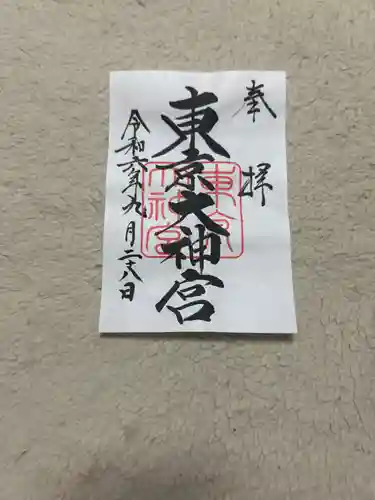 奉拝
東京大神宮
東京大神宮
令和六年九月二十八日